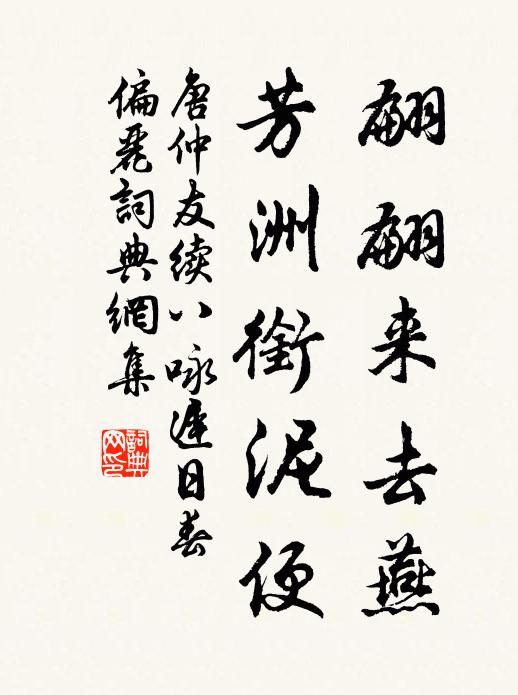 翩翩来去燕
芳洲銜泥便
唐仲友續八咏遲日春
偏麗詞典網集
詞典网印